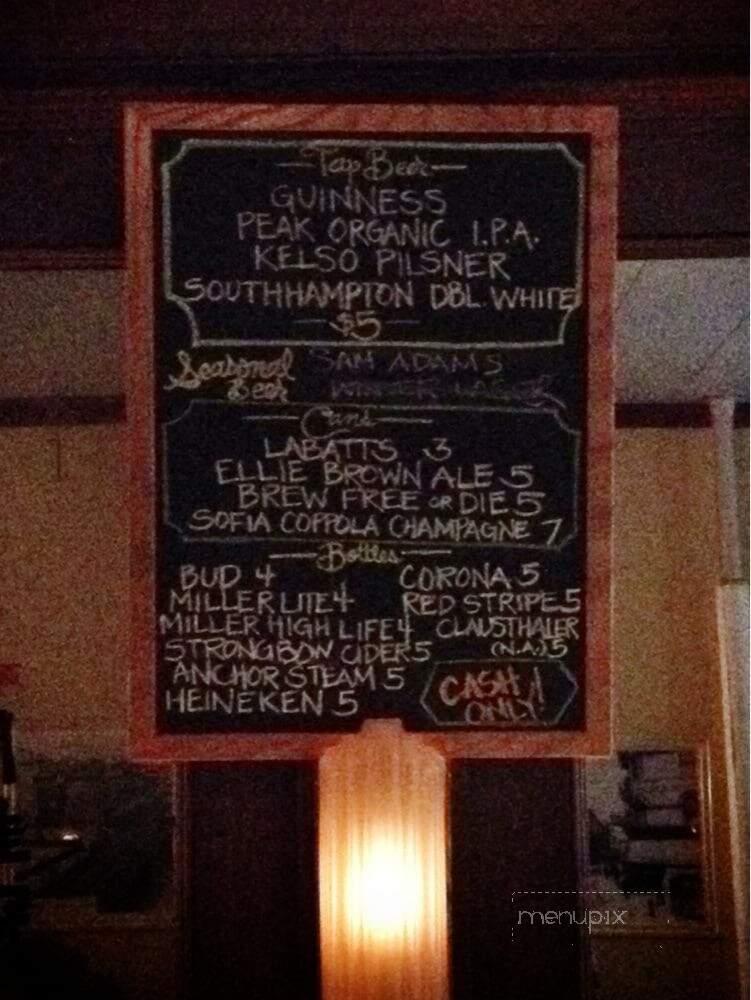 Tap Beer
GUINNESS
PEAK ORGANIC I.P.A.
KELSO PILSNER
SOUTHHAMPTON DBL. WHITE
$5
Seasonal Beer
SAM ADAMS
WINTER LAGER
Cans
LABATTS 3
ELLIE BROWN ALE 5
BREW FREE OR DIE 5
SOFIA COPPOLA CHAMPAGNE 7
Bottles
BUD 4
MILLER LITE 4
MILLER HIGH LIFE 4
STRONGBOW CIDER 5
ANCHOR STEAM 5
HEINEKEN 5
CORONA 5
RED STRIPE 5
CLAUSTHALER
(N.A.) 5
CASH
ONLY!
menupix